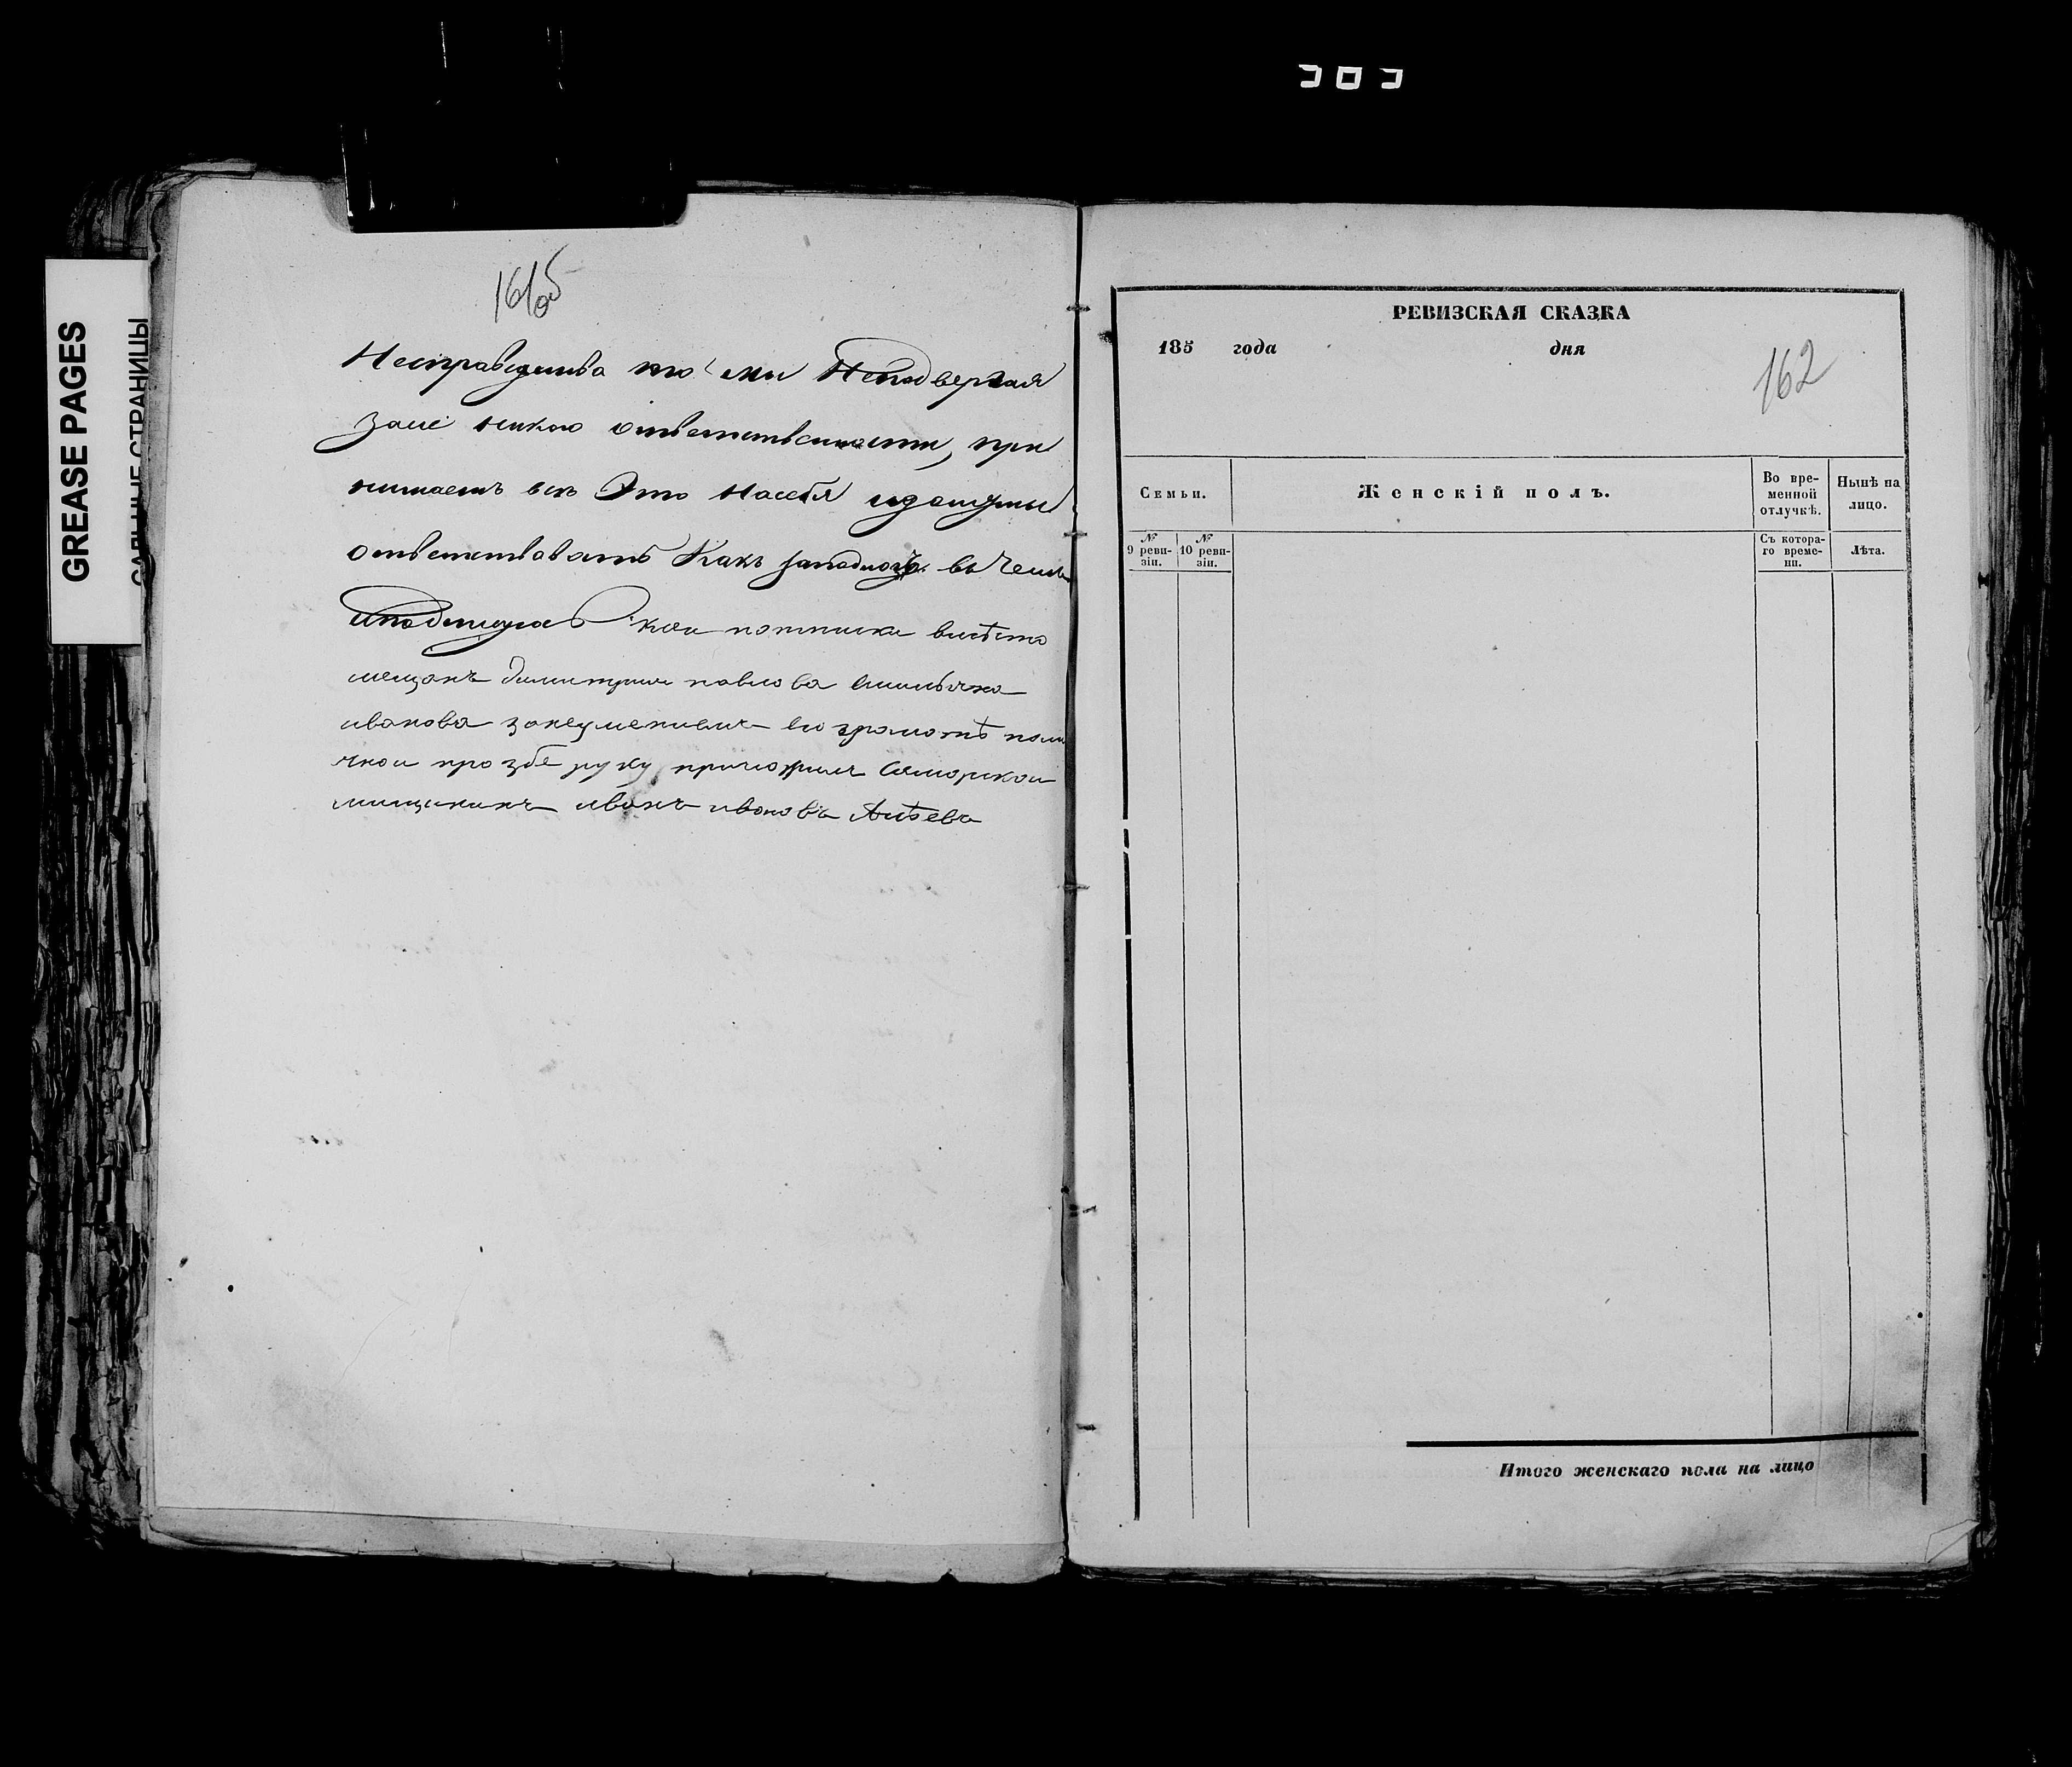 GREASE PAGES
161об
Несправедлива то мы Неподвергая
заие никого ответственности, при
нимаем все Это Насебя идолжны
ответствовать Какъ заподлогъ. въ чемъ
иподписуемъ кѣи потписки вмѣсто
мещанъ димитрия павлова
иванова занеуменнемъ въ грамотѣ поли
чной прозбе руку приложилъ Самарской
мищининъ иванъ иванова
РЕВИЗСКАЯ СКАЗКА
185 года дня
162
Семьи.
Женскій полъ.
Во вре-
менной
отлучкѣ.
Нынѣ на
лицо.
№
9 реви-
зіи.
№
10 реви-
зіи.
Съ котора-
го време-
ни.
Лѣта.
Итого женскаго пола на лицо